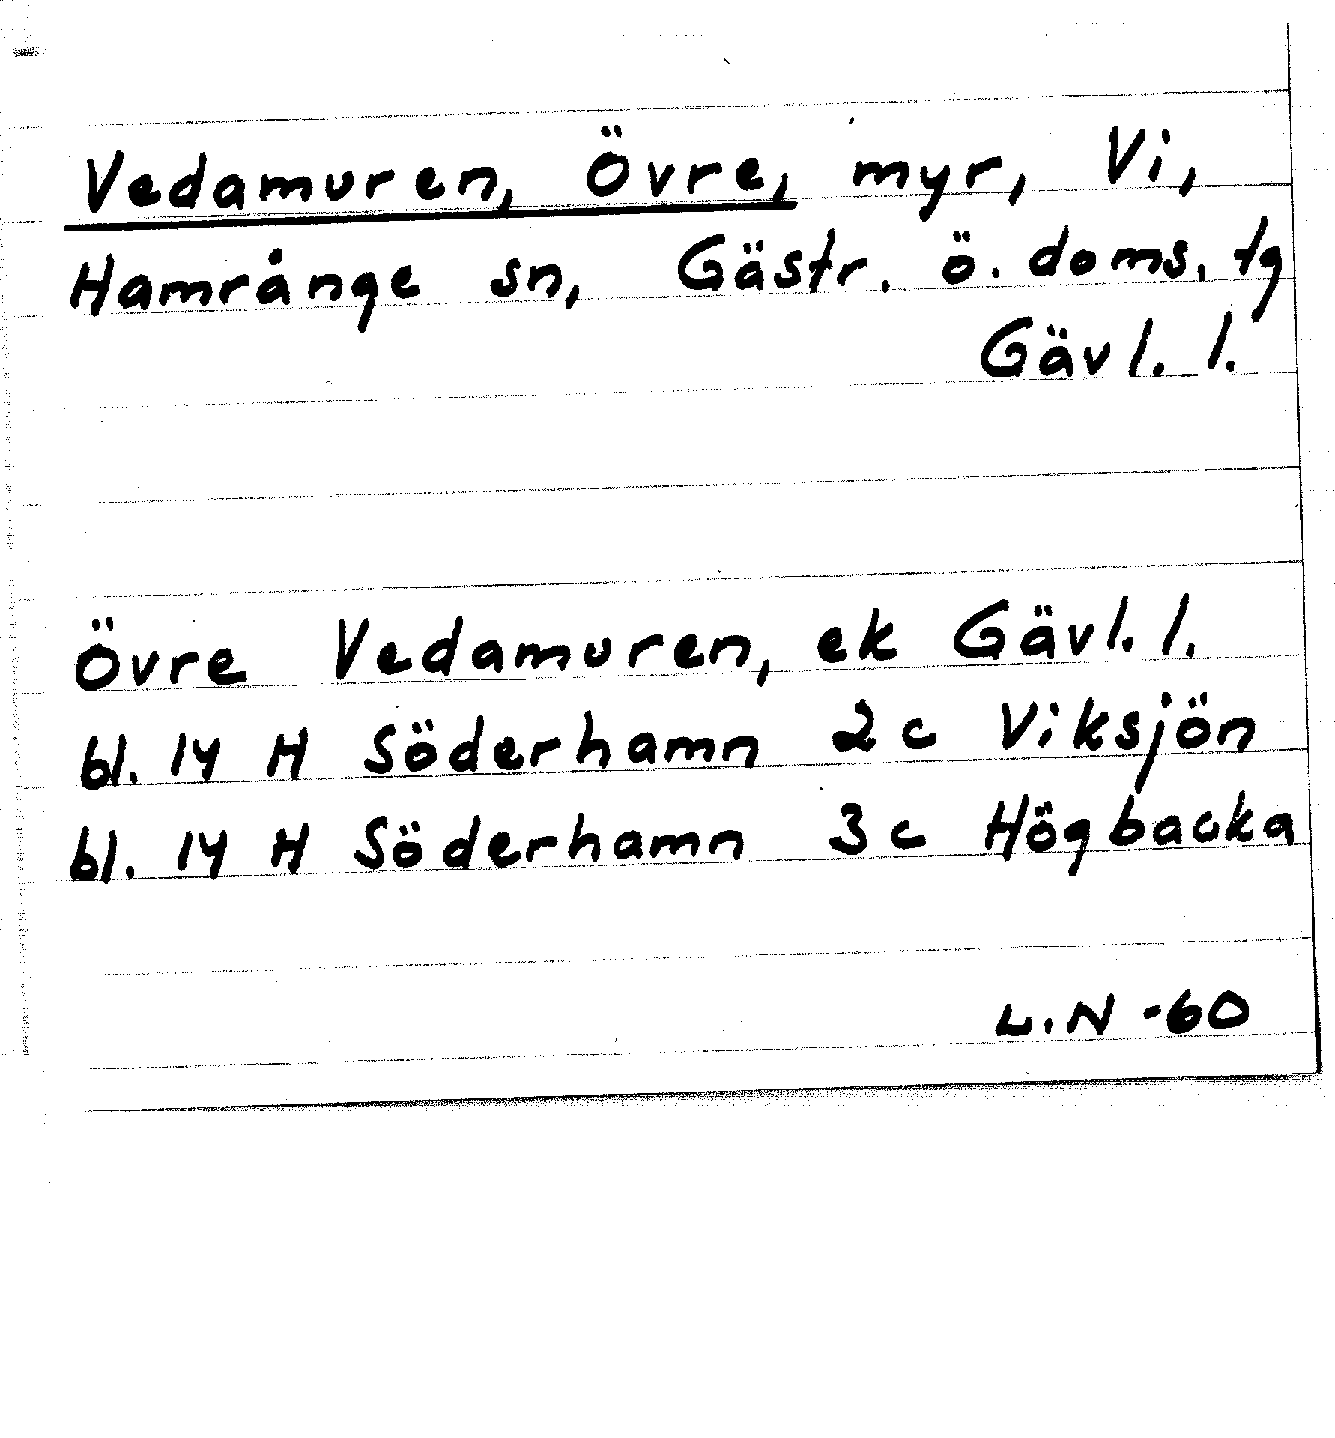 Vedamuren, Övre, myr, Vi,
Hamrånge sn, Gästr. ö. doms. tg
Gävl. l.
Övre Vedamuren, ek Gävl. l.
bl. 14 H Söderhamn 2 c Viksjön
bl. 14 H Söderhamn 3 c Högbacka
L.N -60